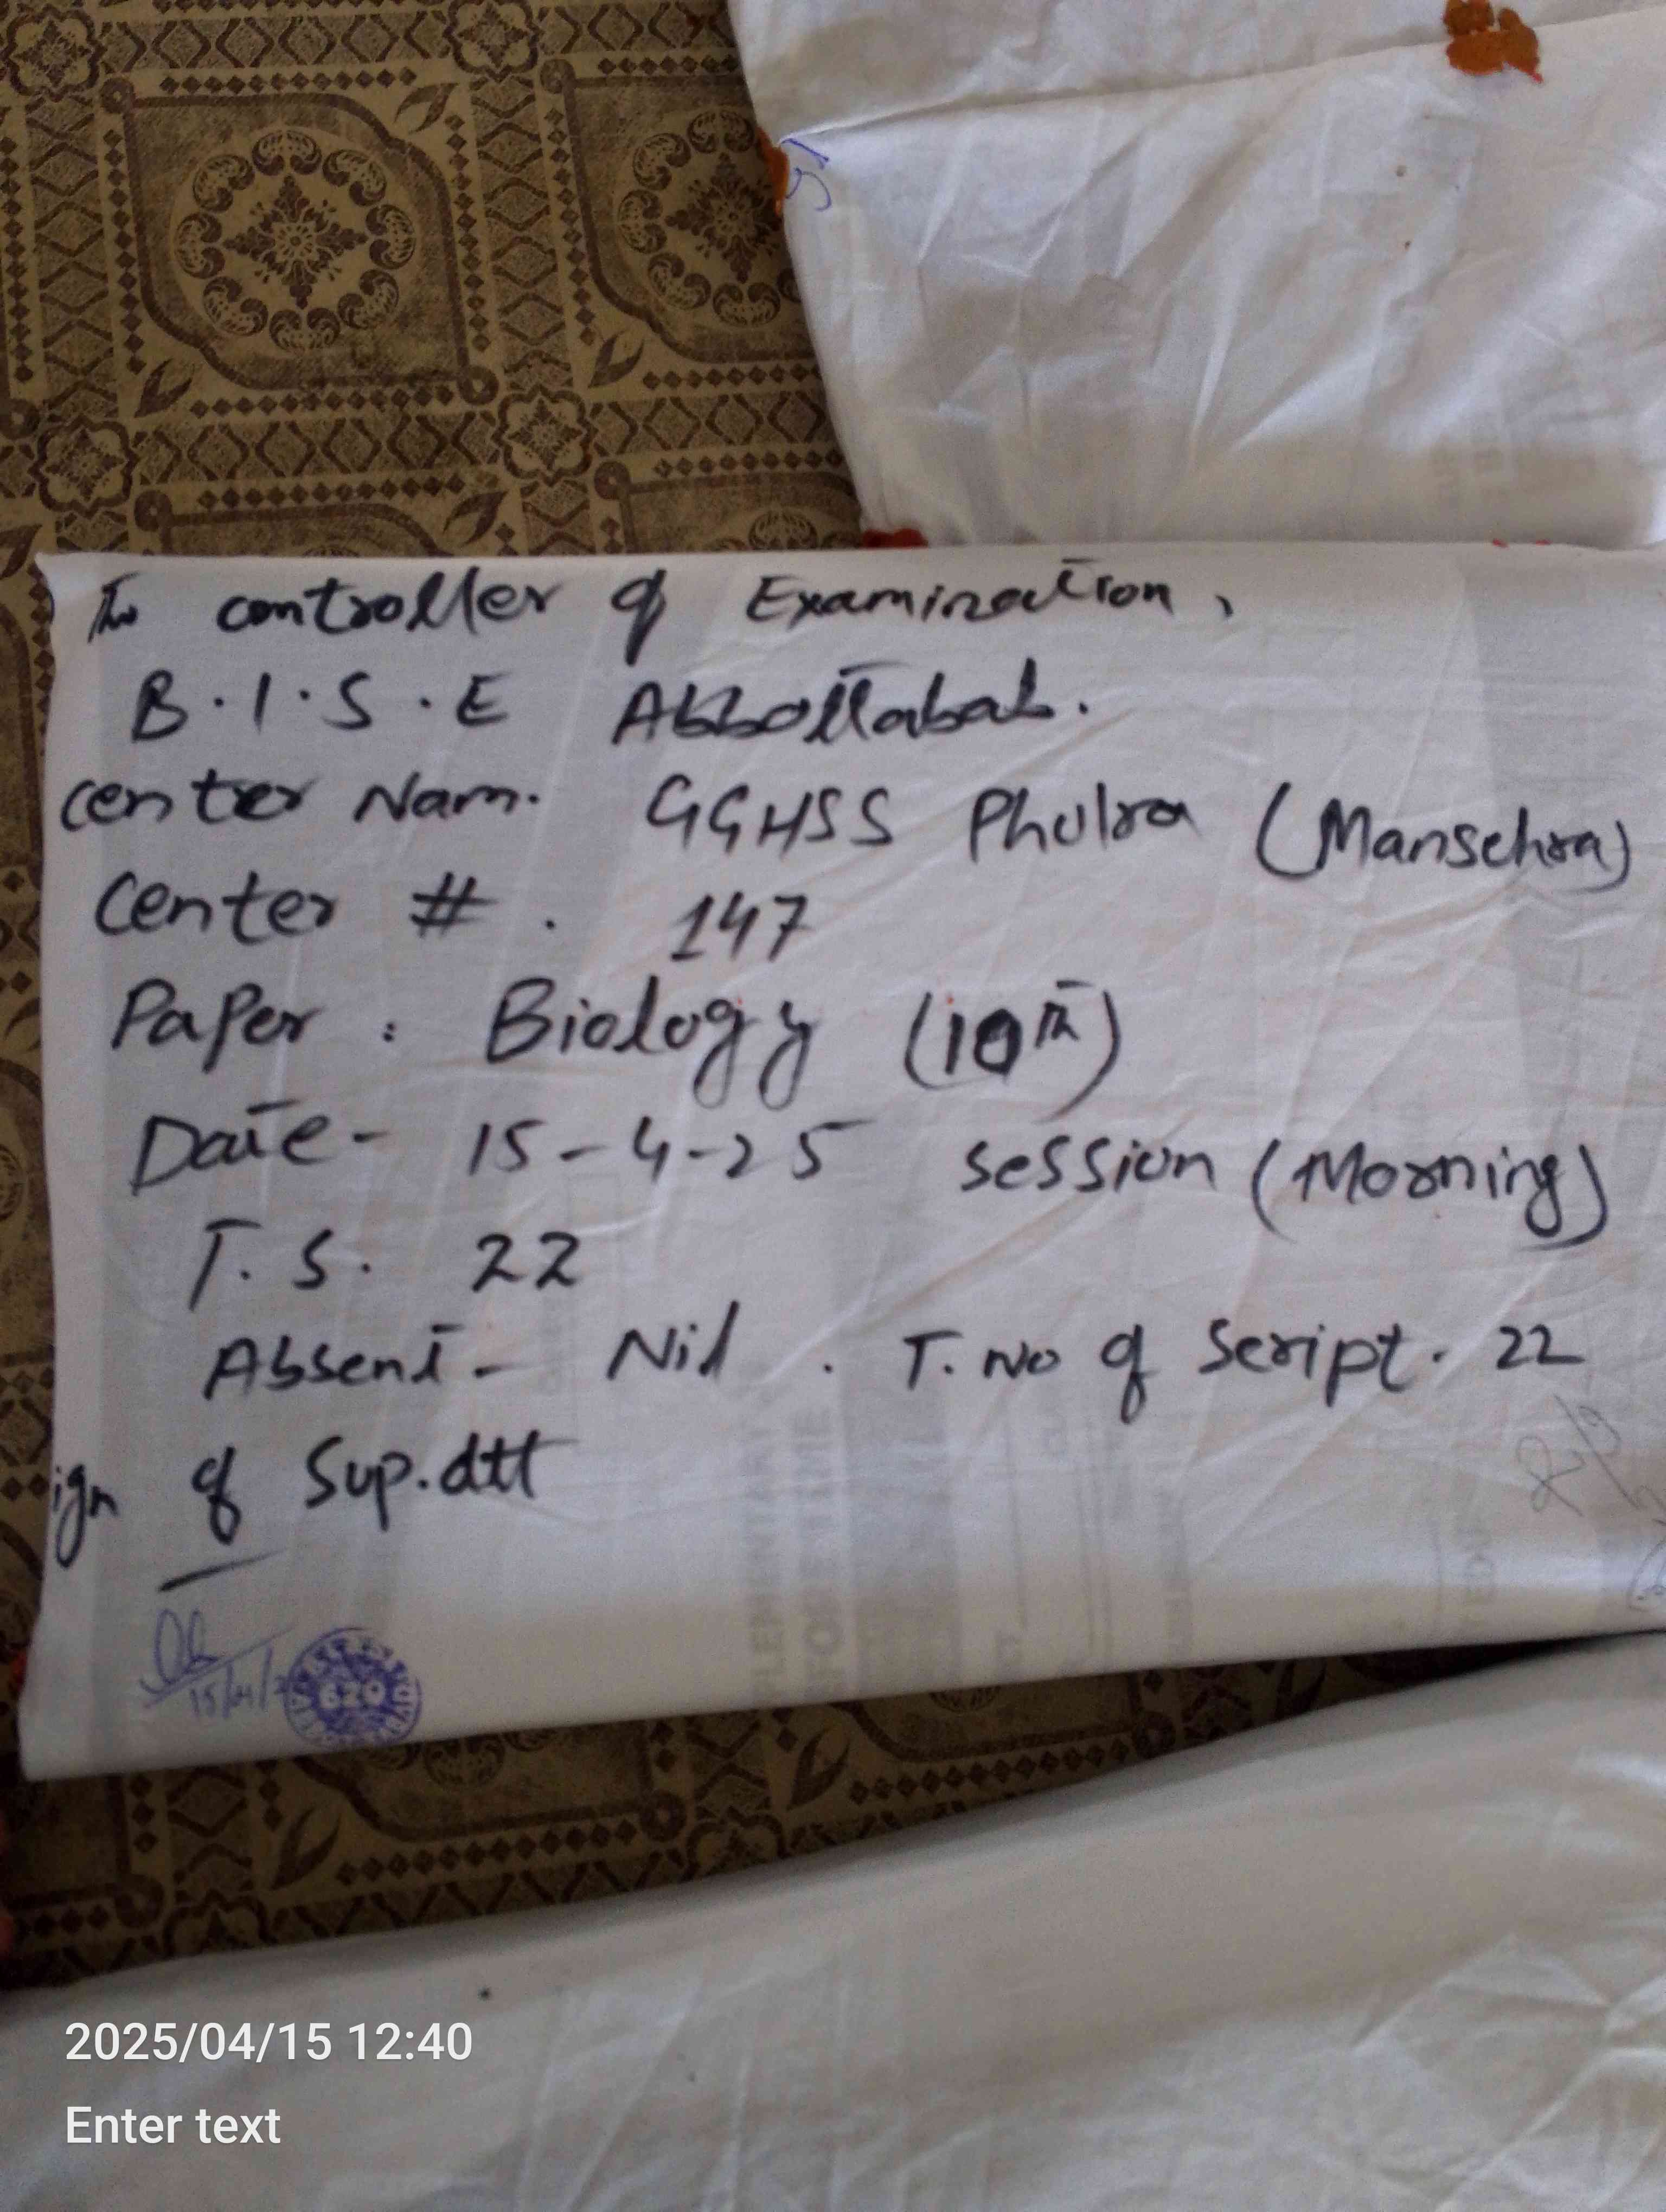 The controller of Examination,
B.I.S.E Abbottabad.
Center Nam.  GGHSS Phulra (Mansehra)
Center #. 147
Paper: Biology (10th)
Date- 15-4-25 Session (Morning)
T.S. 22
Absent- Nil. T. No of Script. 22
ign of Sup.dtt
15/04/
620
2025/04/15 12:40
Enter text